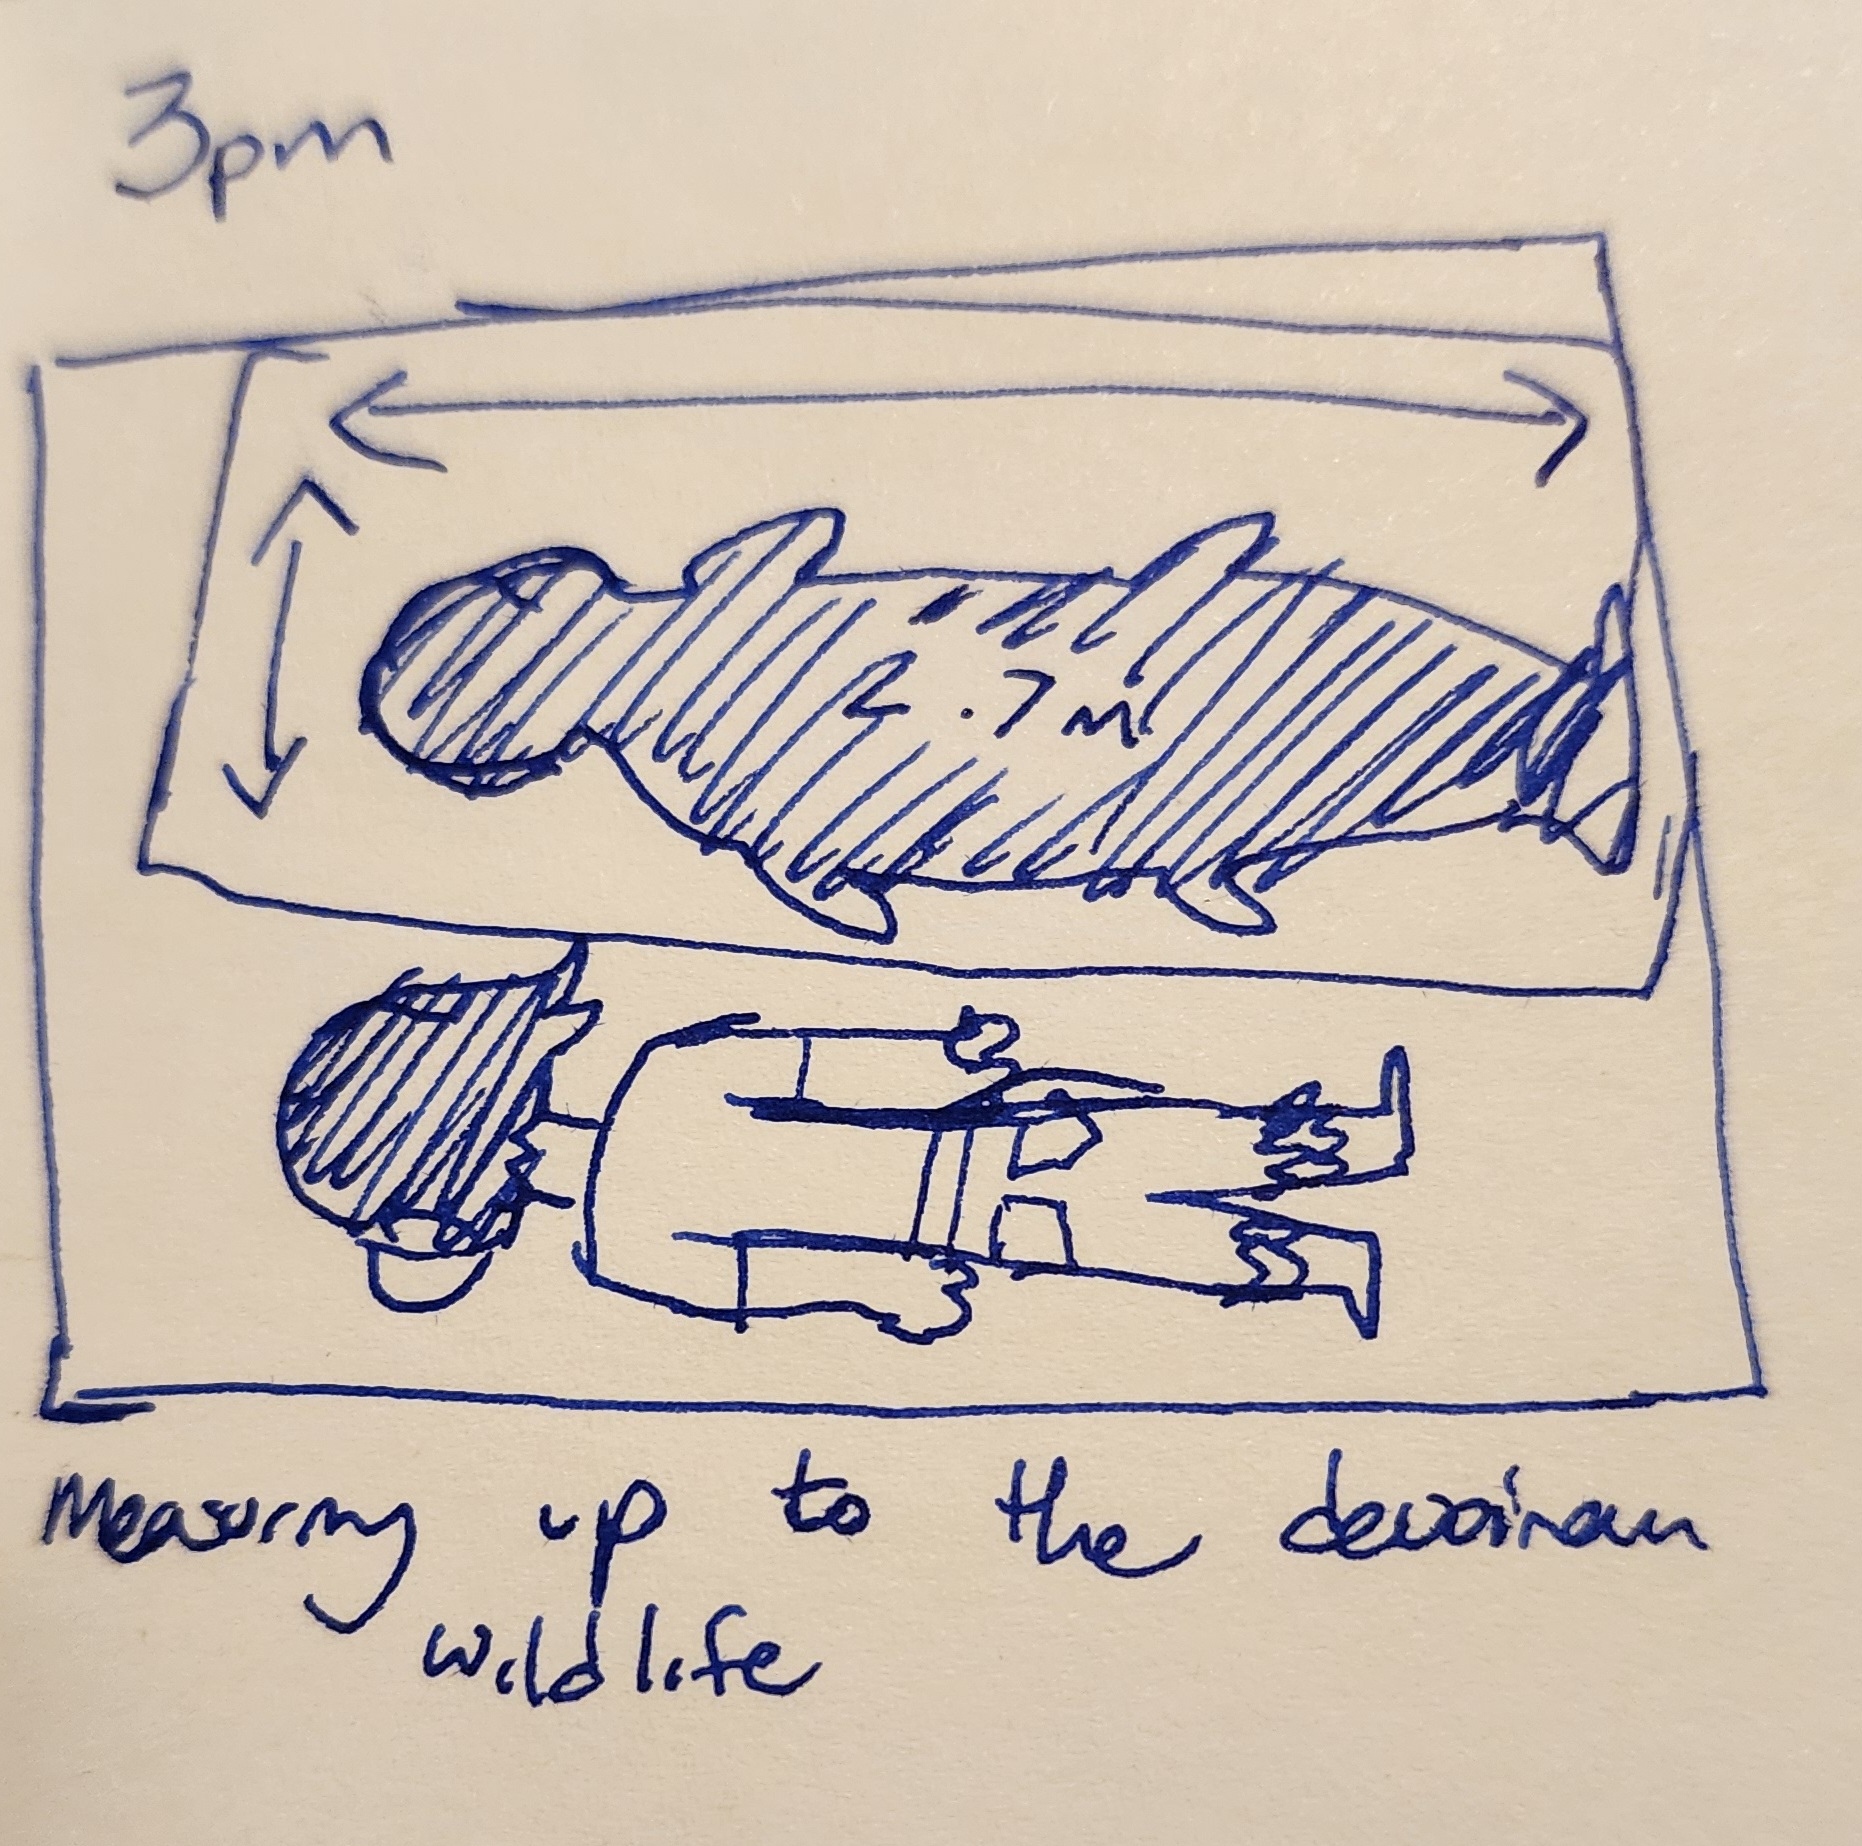 3pm
2.7m
Measuring up to the devoinan
wildlife